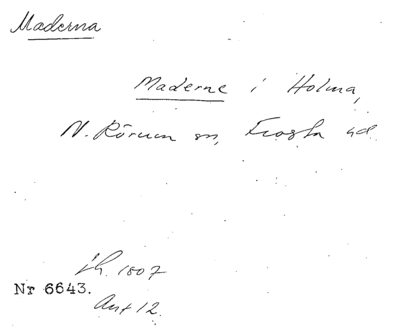 Maderna
Maderne i Holma,
N. Rörum sn, Frosta hd
fh. 1807
Nr 6643.
Ant 12.